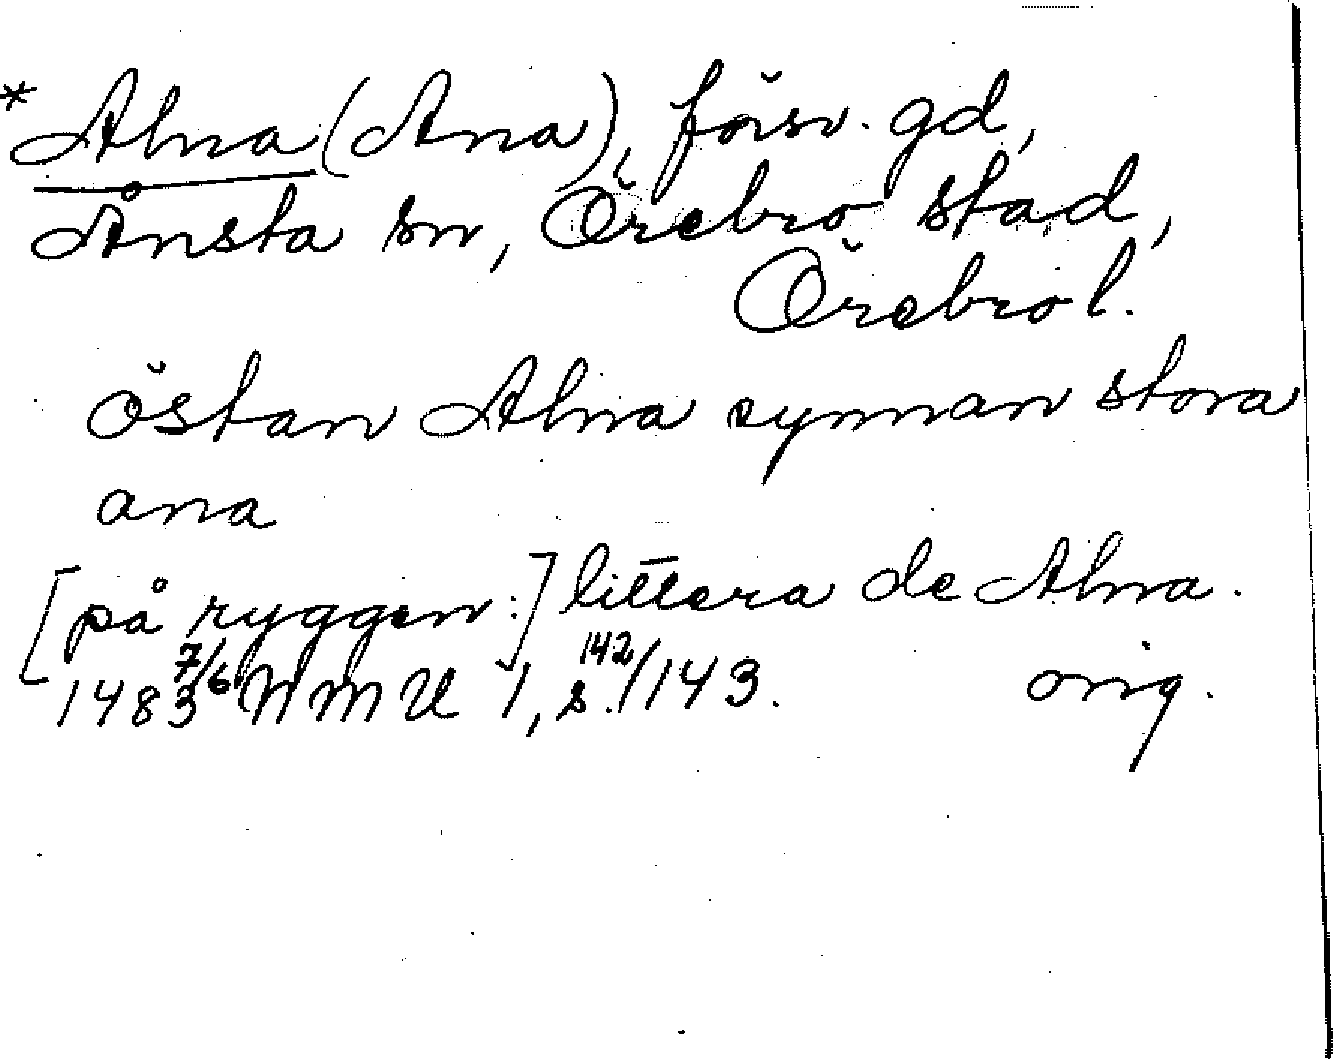 *Alna (Ana), försv. gd,
Ånsta sn, Örebro stad,
Örebro l.
östan Alna synnan stora
ana
[på ryggen:] littera de Alna.
1483 7/6 NMU 1, s. 142/143. orig.